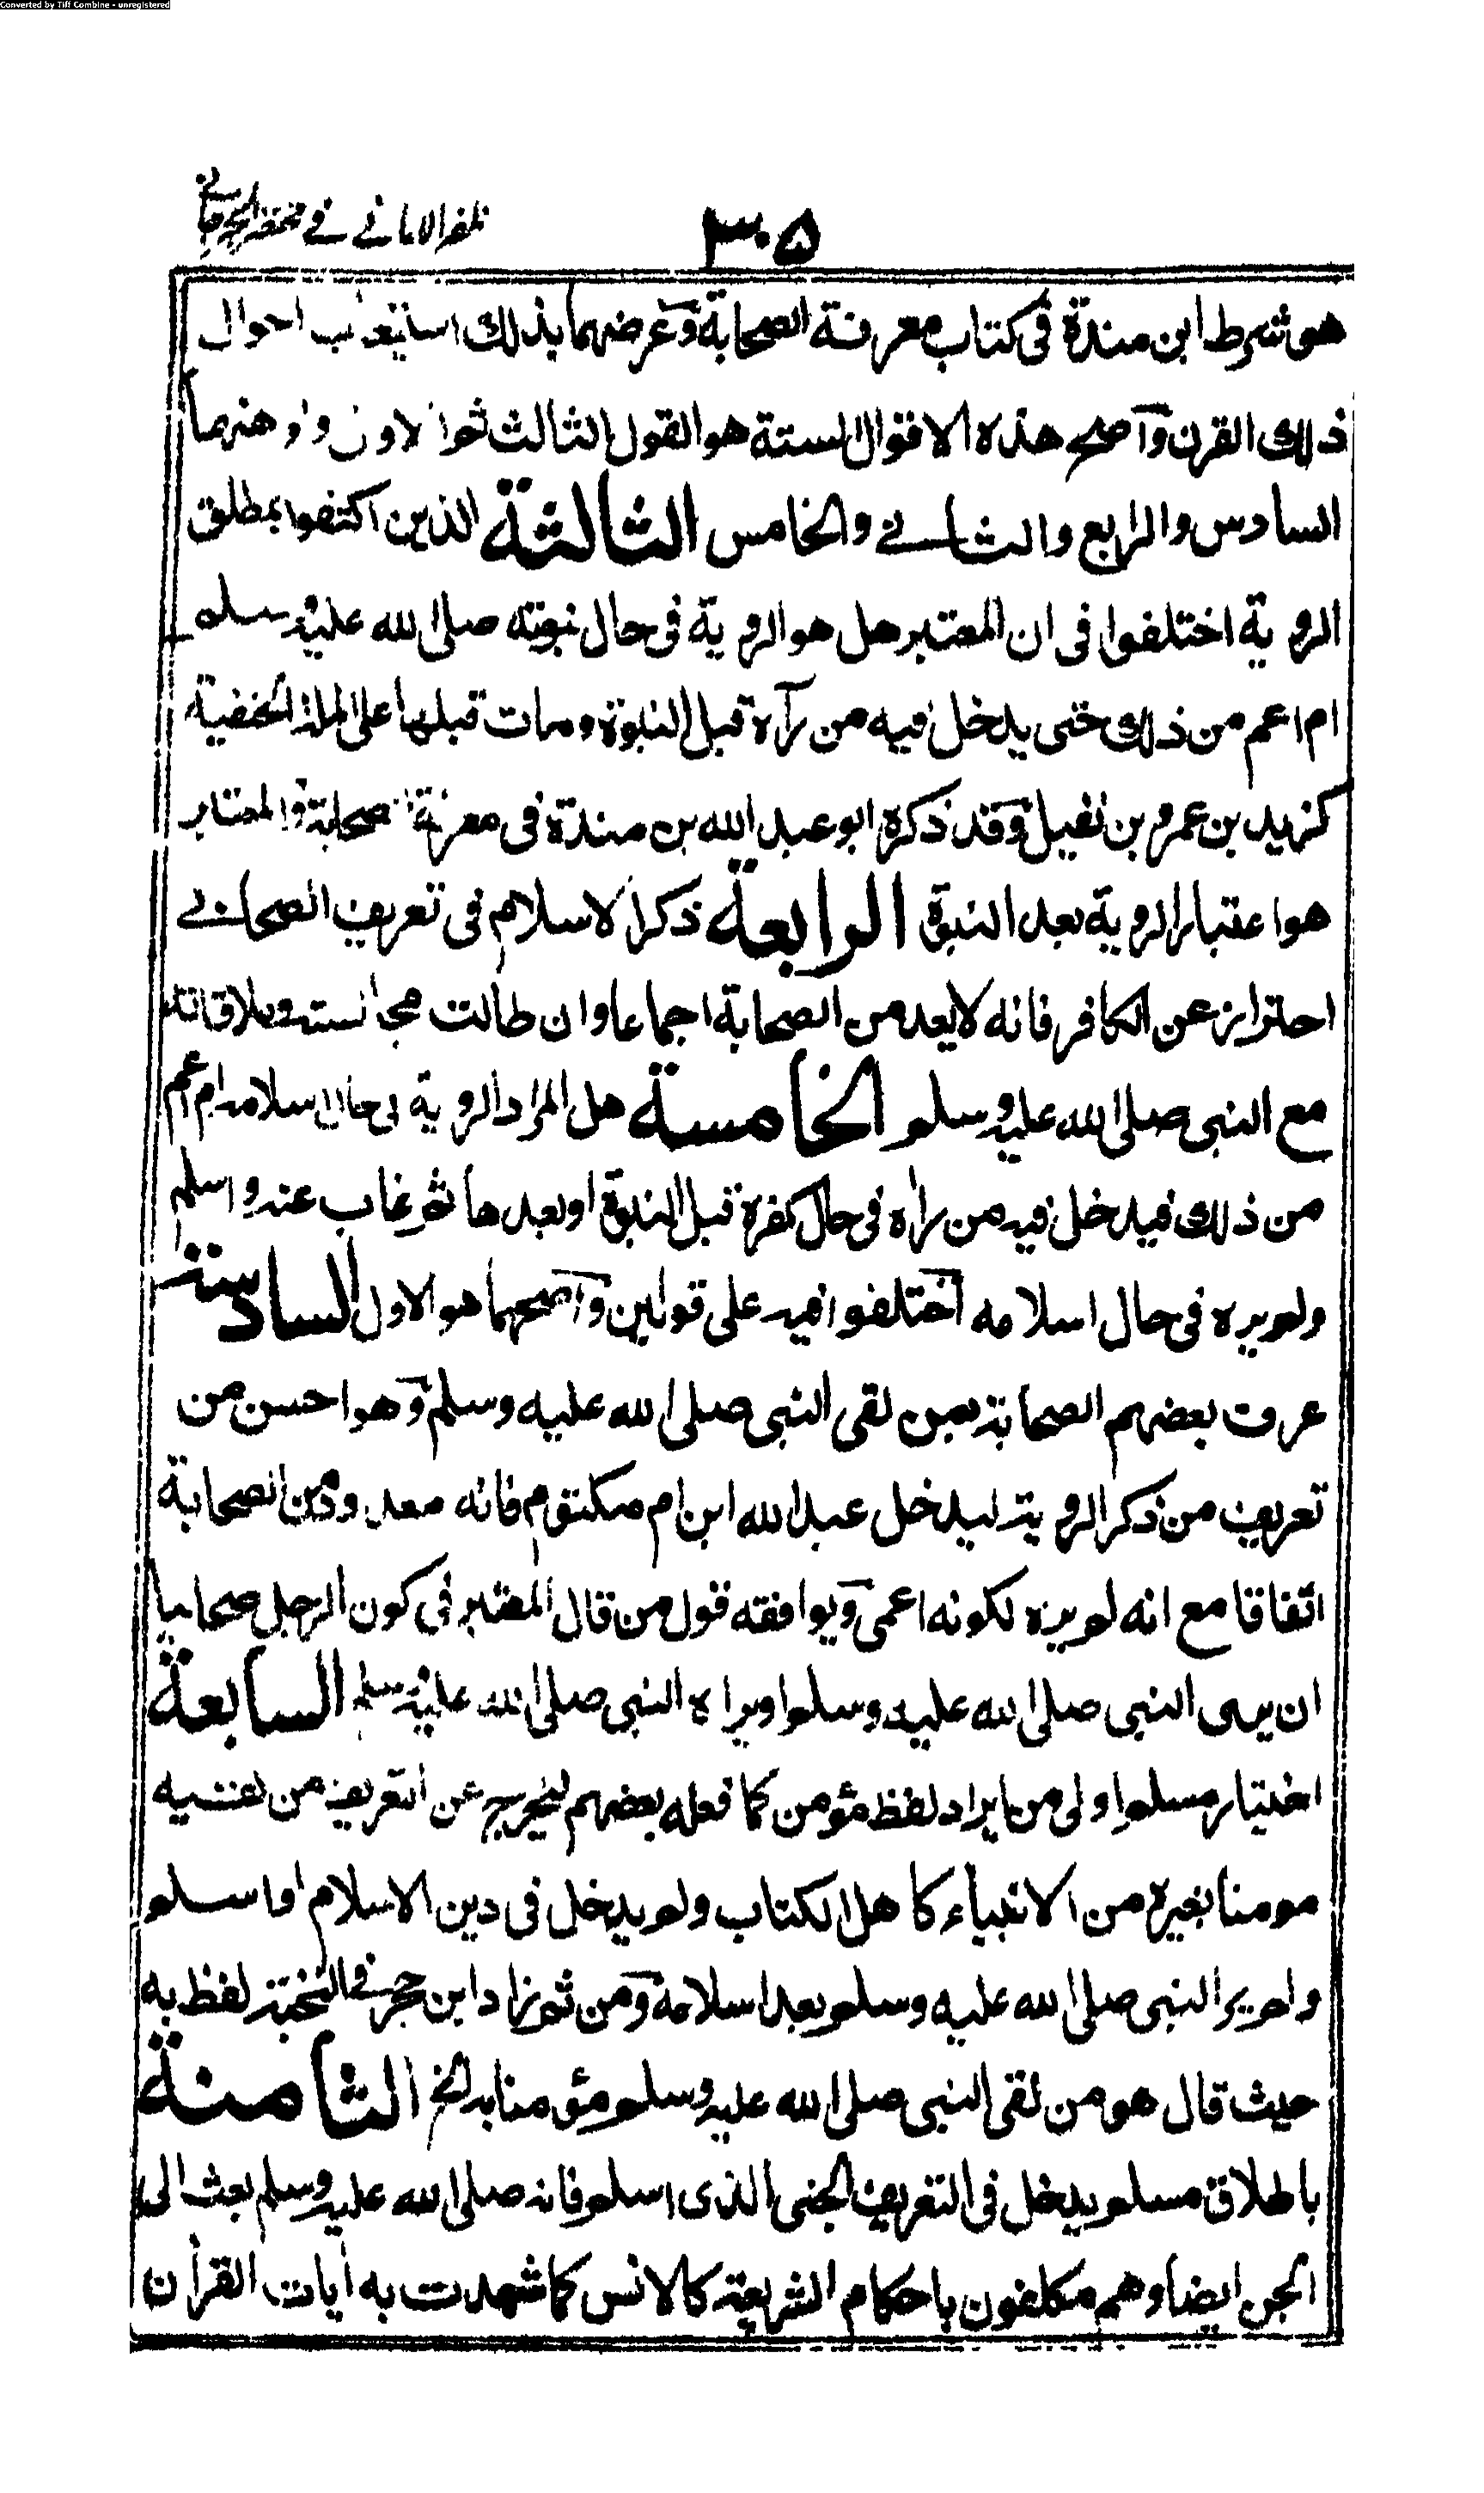 Converted by Tiff Combine - unregistered
٣٠٥
ظفر الامانى فى مختصر الجرجانى
هو شرط ابن مندة فى كتاب معرفة الصحابة وغرضهما بذلك استيعاب احوال
ذلك القرن واصح هذه الاقوال الستة هو القول الثالث ثم الاول واوهنهما
السادس والرابع والثانى والخامس الثالثة الذين اكتفوا بمطلق
الروية اختلفوا فى ان المعتبر هل هو الروية فى حال نبوته صلى الله عليه وسلم
ام اعم من ذلك حتى يدخل فيه من رآه قبل النبوة ومات قبلها على الملة الحنفية
كزيد بن عمرو بن نفيل وقد ذكره ابو عبد الله بن مندة فى معرفة الصحابة والمعتبر
هو اعتبار الروية بعد النبوة الرابعة ذكر الاسلام فى تعريف الصحابى
احتراز عن الكافر فانه لا يعد من الصحابة اجماعا وان طالت مجالسته وملاقاته
مع النبى صلى الله عليه وسلم الخامسة هل المراد الروية فى حال اسلامه ام اعم
من ذلك فيدخل فيه من رأه فى حال كفره قبل النبوة او بعدها ثم غاب عنه واسلم
ولم يره فى حال اسلامه اختلفوا فيه على قولين واصحهما هو الاول السادسة
عرف بعضهم الصحابة بمن لقى النبى صلى الله عليه وسلم وهو احسن من
تعريف من ذكر الروية ليدخل عبد الله ابن ام مكتوم فانه معدود من الصحابة
اتفاقا مع انه لم يره لكونه اعمى ويوافقه قول من قال المعتبر فى كون الرجل صحابيا
ان يرى النبى صلى الله عليه وسلم او يراه النبى صلى الله عليه وسلم السابعة
اختيار مسلم اولى من ايراد لفظ مؤمن كما فعله بعضهم ليخرج عن التعريف من لقيه
مومنا بغيره من الانبياء كاهل الكتاب ولم يدخل فى دين الاسلام او اسلم
ولم ير النبى صلى الله عليه وسلم بعد اسلامه ومن ثم زاد ابن حجر فى النخبة لفظ به
حيث قال هو من لقى النبى صلى الله عليه وسلم مؤمنا به الخ الثامنة
باطلاق مسلم يدخل فى التعريف الجنى الذى اسلم فانه صلى الله عليه وسلم بعث الى
الجن ايضا وهم مكلفون باحكام الشريعة كالانس كما شهدت به ايات القرأن